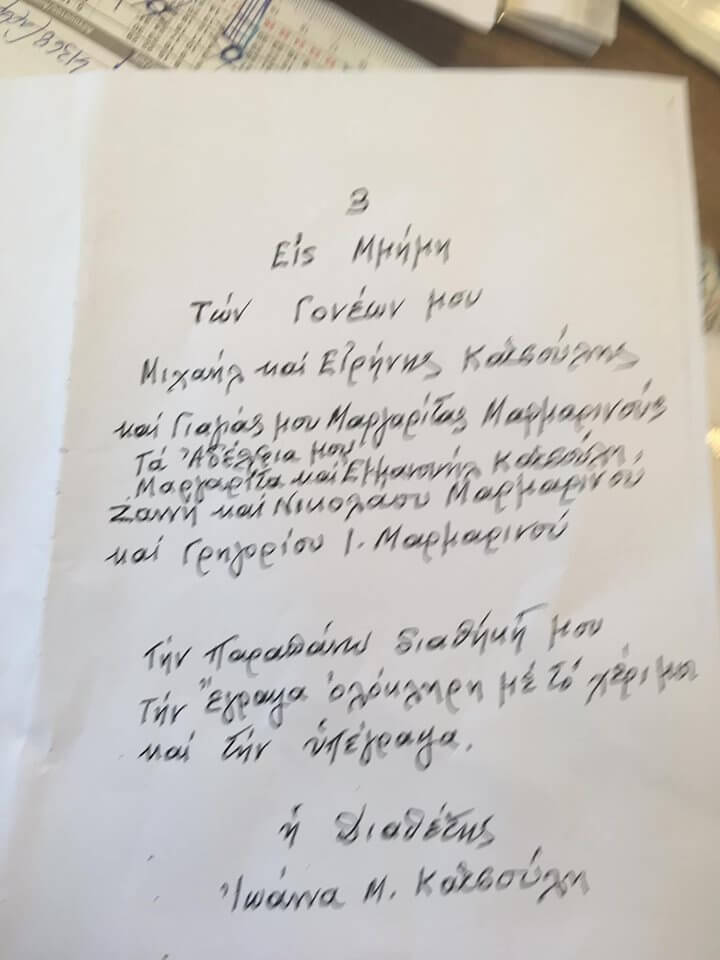 3
Είς Μμήμη
Τών Γονέων μου
Μιχαήλ καί Είρήνης Κατσούλης
καί Γιαγιάς μου Μαργαρίτας Μαρμαρινούς
Τά Ἀδέλφια μου
Μαργαρίτα καί Εμμανουήλ Κατσούλη,
Ζαννή καί Νικολάου Μαρμαρινού
καί Γρηγορίου Ι. Μαρμαρινού
Τήν Παραπάνω διαθήκη μου
τήν Ἔγραψα ὁλόκληρη μέ τό χέρι μου
καί τήν ὑπέγραψα.
ἡ Διαθέτης
Ἰωάννα Μ. Κατσούλη